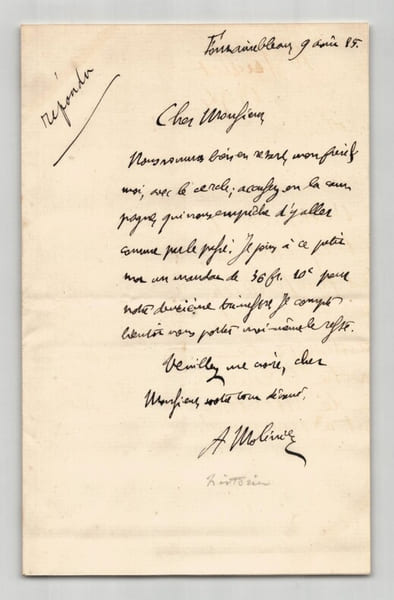 Fontainebleau, 9 août 85.
répondu
Cher Monsieur
Nous sommes bien en retard, mon frère &
moi, avec le cercle; accusez en la cam
pagne, qui nous empêche d'y aller
comme par le passé. Je joins à ce petit
mot un mandat de 36 fr. 20c pour
notre deuxième trimestre. Je compte
bientôt vous porter moi-même le reste.
Veuillez me croire, cher
Monsieur, votre tout dévoué.
A Molinier
historien